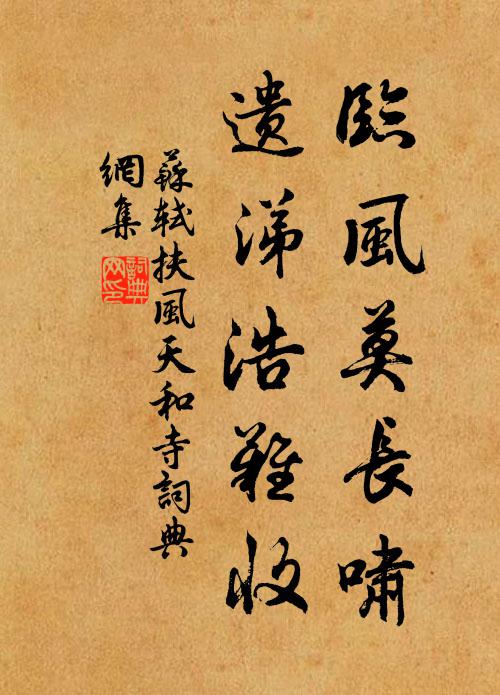 臨風莫長嘯
遺涕浩難收
蘇軾扶風天和寺詞典
網集
詞典網印